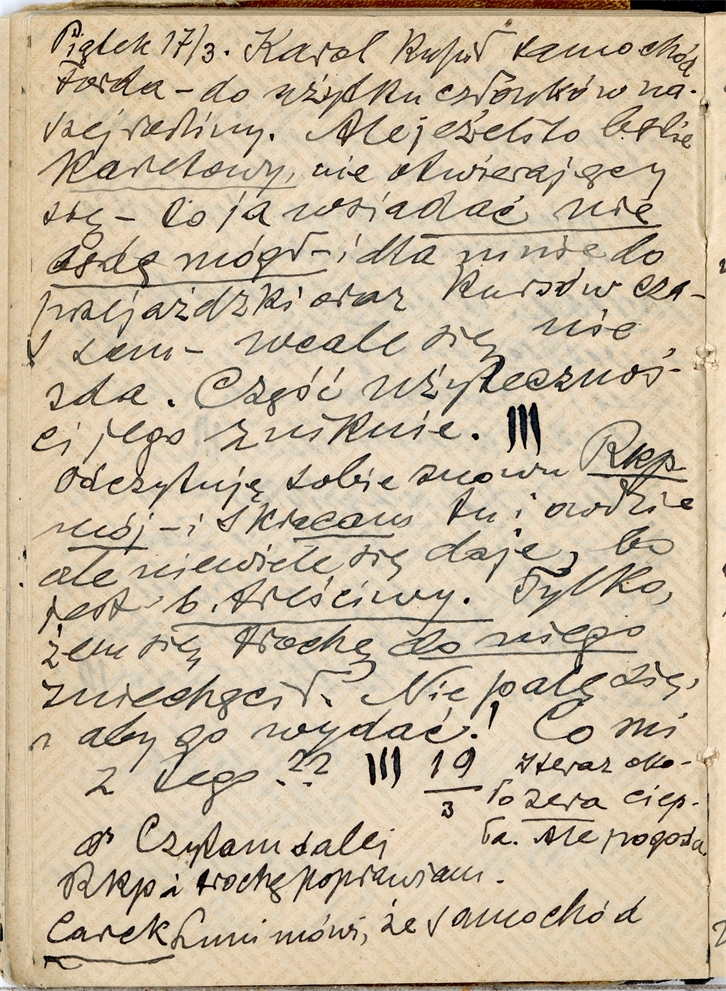 Piątek 17/3. Karol kupił samochód
Forda – do użytku członków na-
szej rodziny. Ale jeżeli to będzie
karetowy, nie otwierający
się – to ja wsiadać nie
będę mógł – i dla mnie do
przejażdżki oraz kursów cza-
sem – wcale się nie
zda. Część użytecznoś-
ci jego zniknie. |||
Odczytuję sobie znowu Rkp
mój – i skracam tu i owdzie
ale niewiele się daje, bo
jest b. treściwy. Tylko,
żem się trochę do niego
zniechęcił. Nie palę się,
aby go wydać! Co mi
z tego ?? ||| 19/3 I teraz oko-
ło zera ciep-
ła. Ale pogoda
Czytam dalej
Rkp i trochę poprawiam.
Carek mówi, że samochód